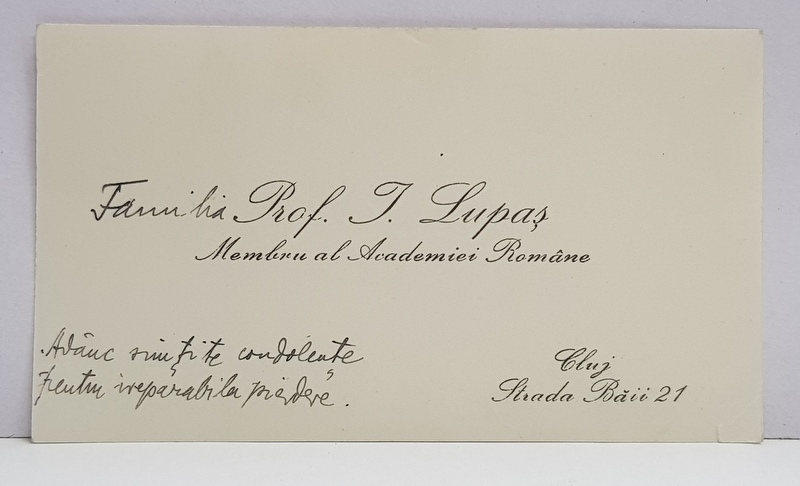 Familia Prof. I. Lupaș
Membru al Academiei Române
Adânc simțite condolențe
pentru ireparabila pierdere.
Cluj
Strada Băii 21